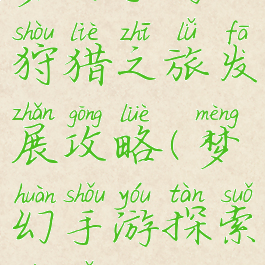 shòu liè zhī lǚ fā
狩猎之旅发
zhǎn gōng lüè mèng
展攻略(梦
huàn shǒu yóu tàn suǒ
幻手游探索